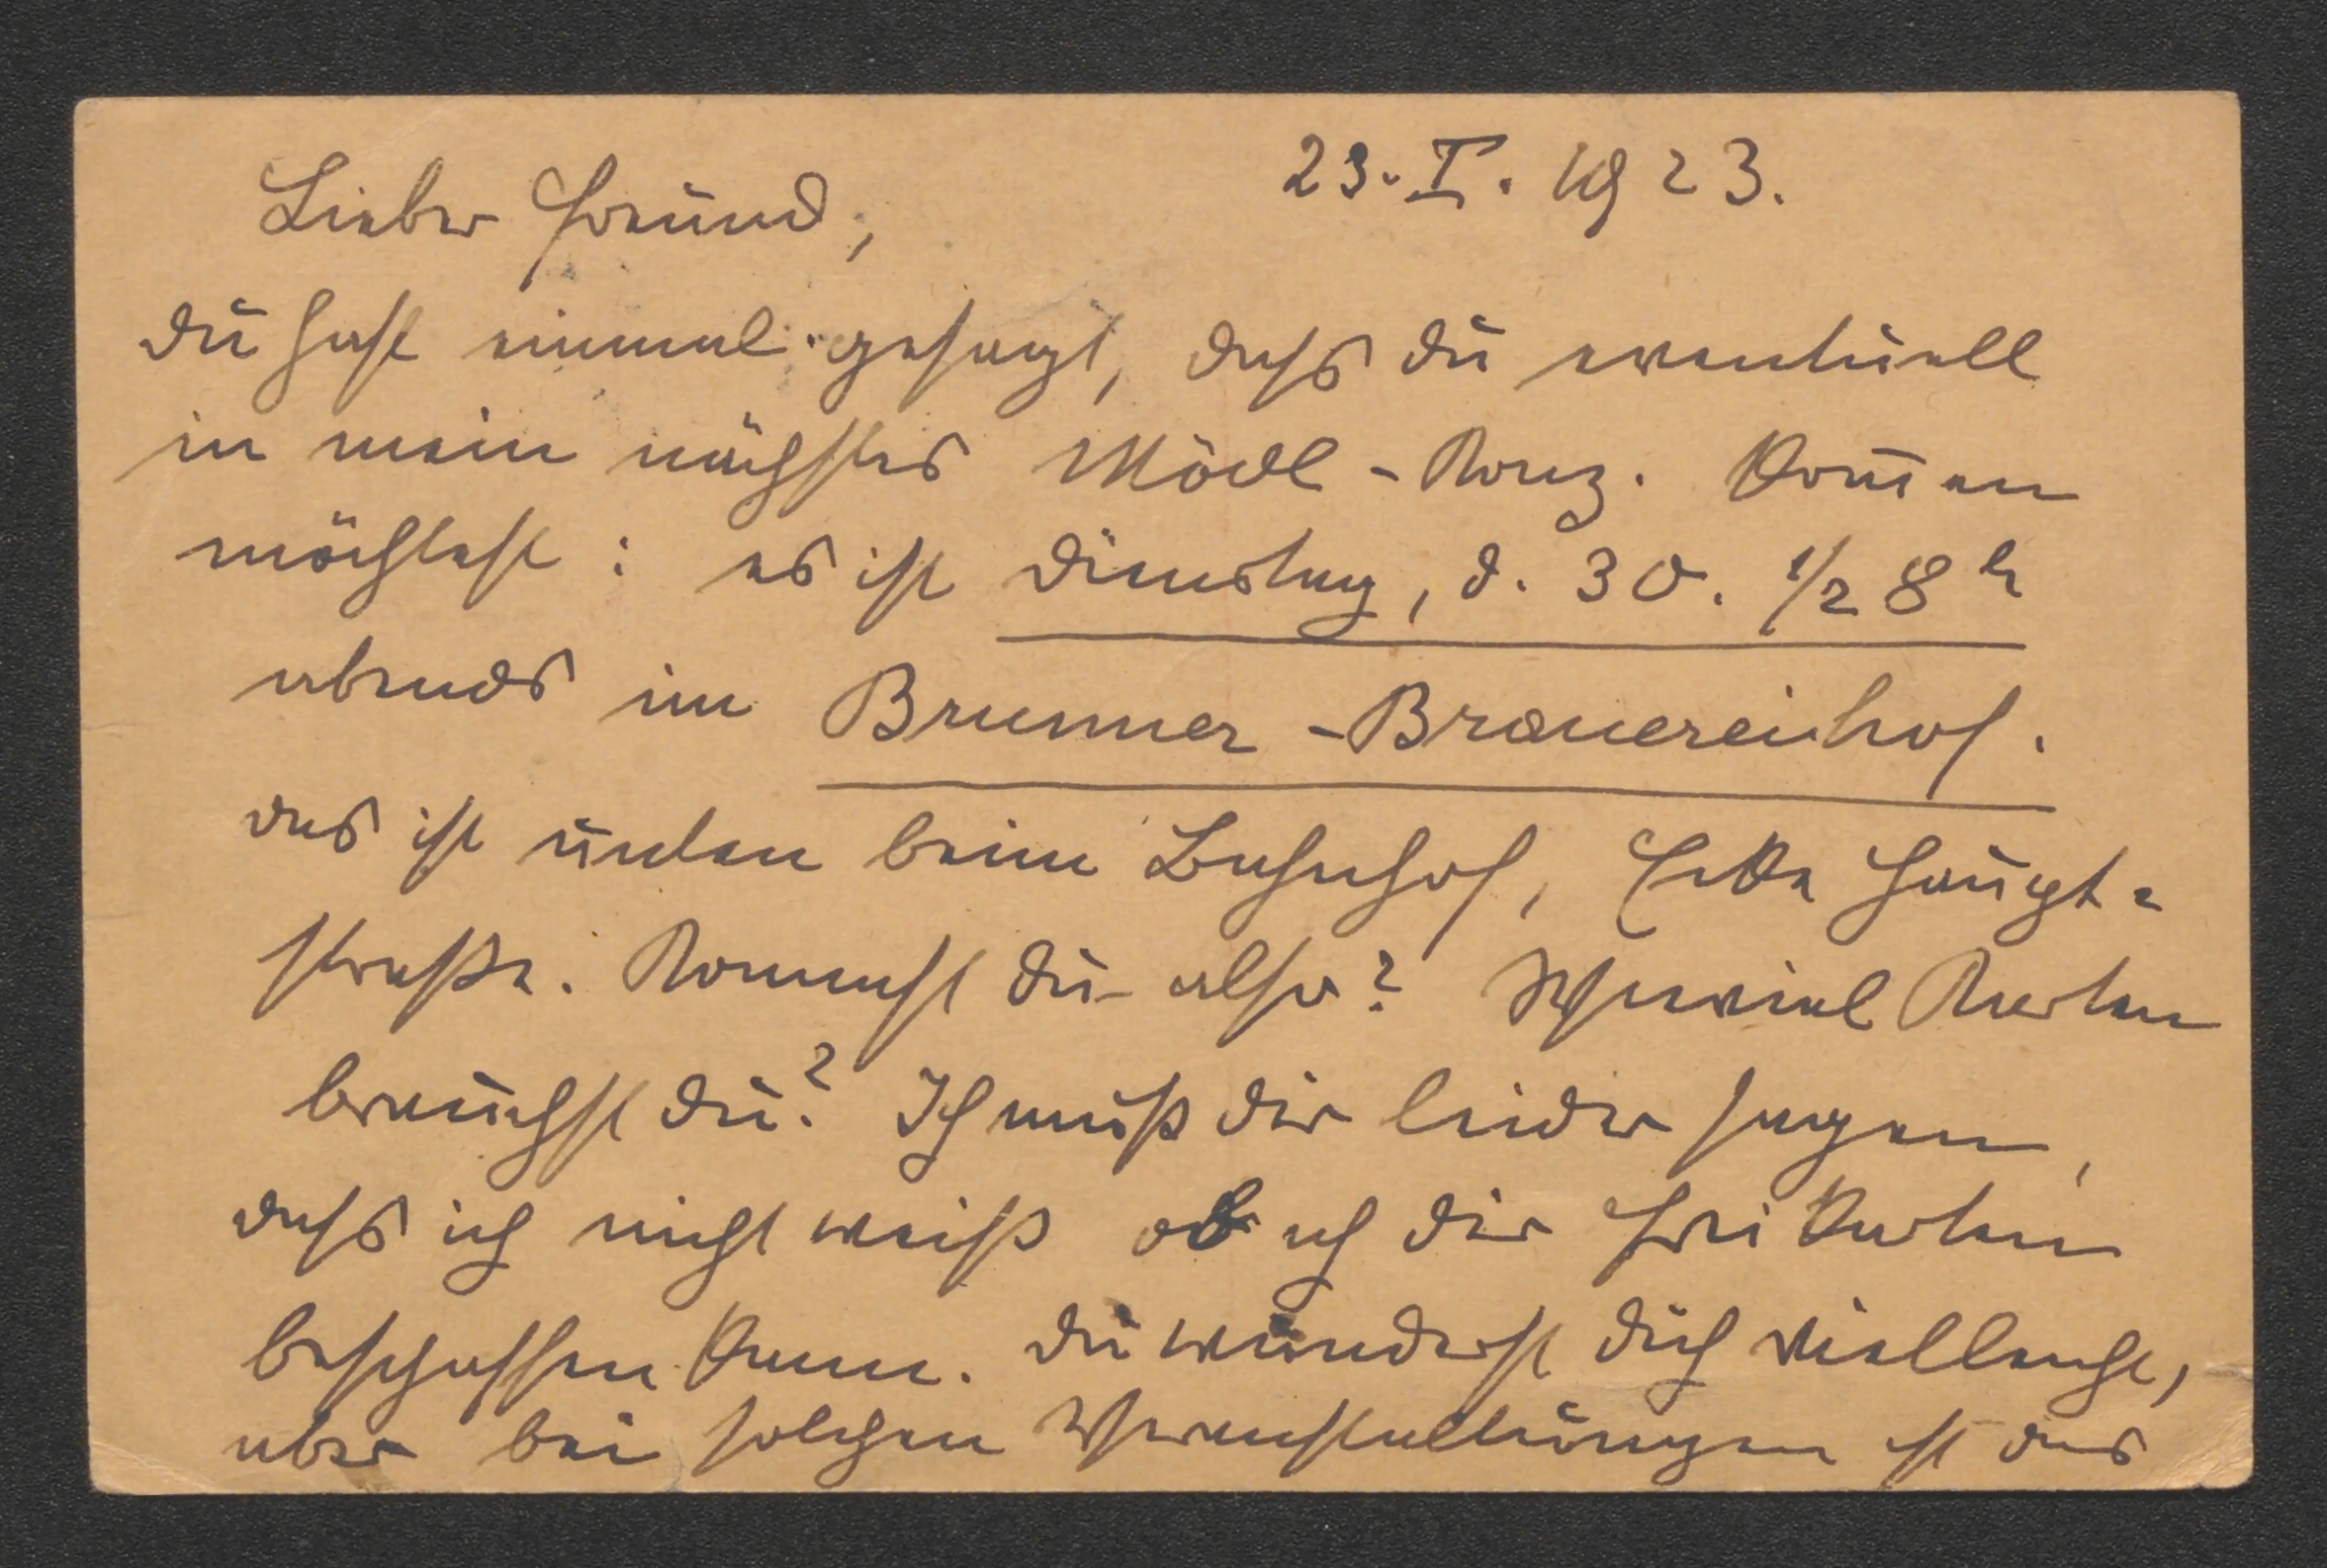 23. I. 1923.
Lieber Freund,
du hast einmal gesagt, dass du eventuell
in mein nächstes Mödl-Konz. kom̄en
möchtest: es ist Dienstag, d. 30. 1/2 8h
abends im Brunner-Brauereihof.
das ist unten beim Bahnhof, Ecke Haupt-
straße. Kommst du also? Wieviel Karten
brauchst du? Ich muß dir leider sagen,
dass ich nicht weiß ob ich dir Freikarten
beschaffen kann. du wunderst dich vielleicht,
aber bei solchen Veranstaltungen ist das